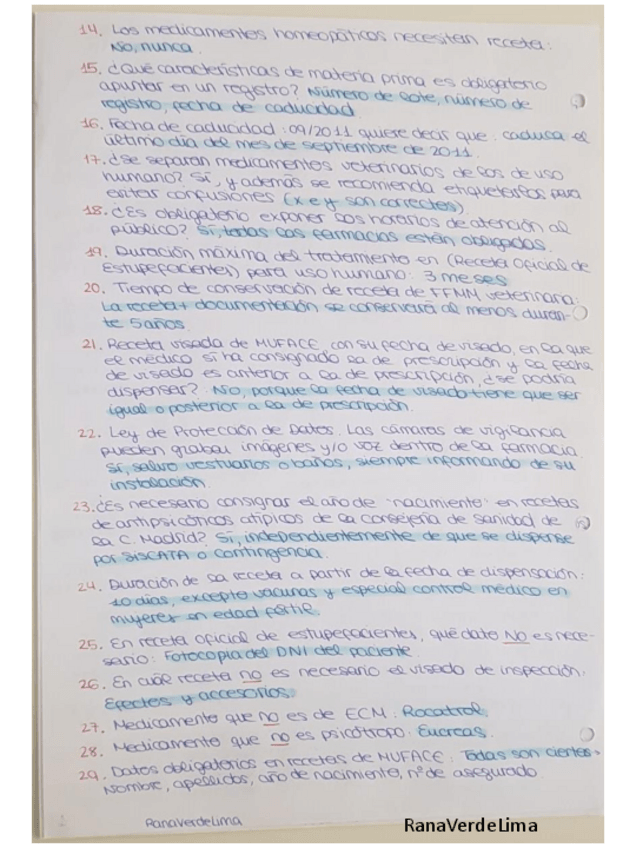 14. Los medicamentos homeopáticos necesitan receta:
No, nunca.
15. ¿Qué características de materia prima es obligatorio
apuntar en un registro? Número de lote, número de
registro, fecha de caducidad.
16. Fecha de caducidad: 09/2011 quiere decir que: caduca el
último día del mes de septiembre de 2011.
17. ¿Se separan medicamentos veterinarios de los de uso
humano? Sí, y además se recomienda etiquetarlos para
evitar confusiones (x e y son correctas).
18. ¿Es obligatorio exponer los horarios de atención al
público? Sí, todas las farmacias están obligadas.
19. Duración máxima del tratamiento en (Receta Oficial de
Estupefacientes) para uso humano: 3 meses
20. Tiempo de conservación de receta de FFMM veterinaria:
La receta + documentación se conservará al menos duran-
te 5 años.
21. Receta visada de MUFACE con su fecha de visado, en la que
el médico sí ha consignado la de prescripción y la fecha
de visado es anterior a la de prescripción, ¿se podría
dispensar? No, porque la fecha de visado tiene que ser
igual o posterior a la de prescripción.
22. Ley de Protección de Datos. Las cámaras de vigilancia
pueden grabar imágenes y/o voz dentro de la farmacia.
Sí, salvo vestuarios o baños, siempre informando de su
instalación.
23. ¿Es necesario consignar el año de "nacimiento" en recetas
de antipsicóticos atípicos de la Consejería de Sanidad de
la C. Madrid? Sí, independientemente de que se dispense
por SISCATA o contingencia.
24. Duración de la receta a partir de la fecha de dispensación:
10 días, excepto vacunas y especial control médico en
mujeres en edad fértil.
25. En receta oficial de estupefacientes, qué dato NO es nece-
sario: Fotocopia del DNI del paciente.
26. En cuál receta no es necesario el visado de inspección:
Efectos y accesorios.
27. Medicamento que no es de ECM: Rocatrol.
28. Medicamento que no es psicótropo: Eucreas.
29. Datos obligatorios en recetas de MUFACE: Todas son ciertas.
Nombre, apellidos, año de nacimiento, nº de asegurado
RanaVerdeLima
RanaVerdeLima